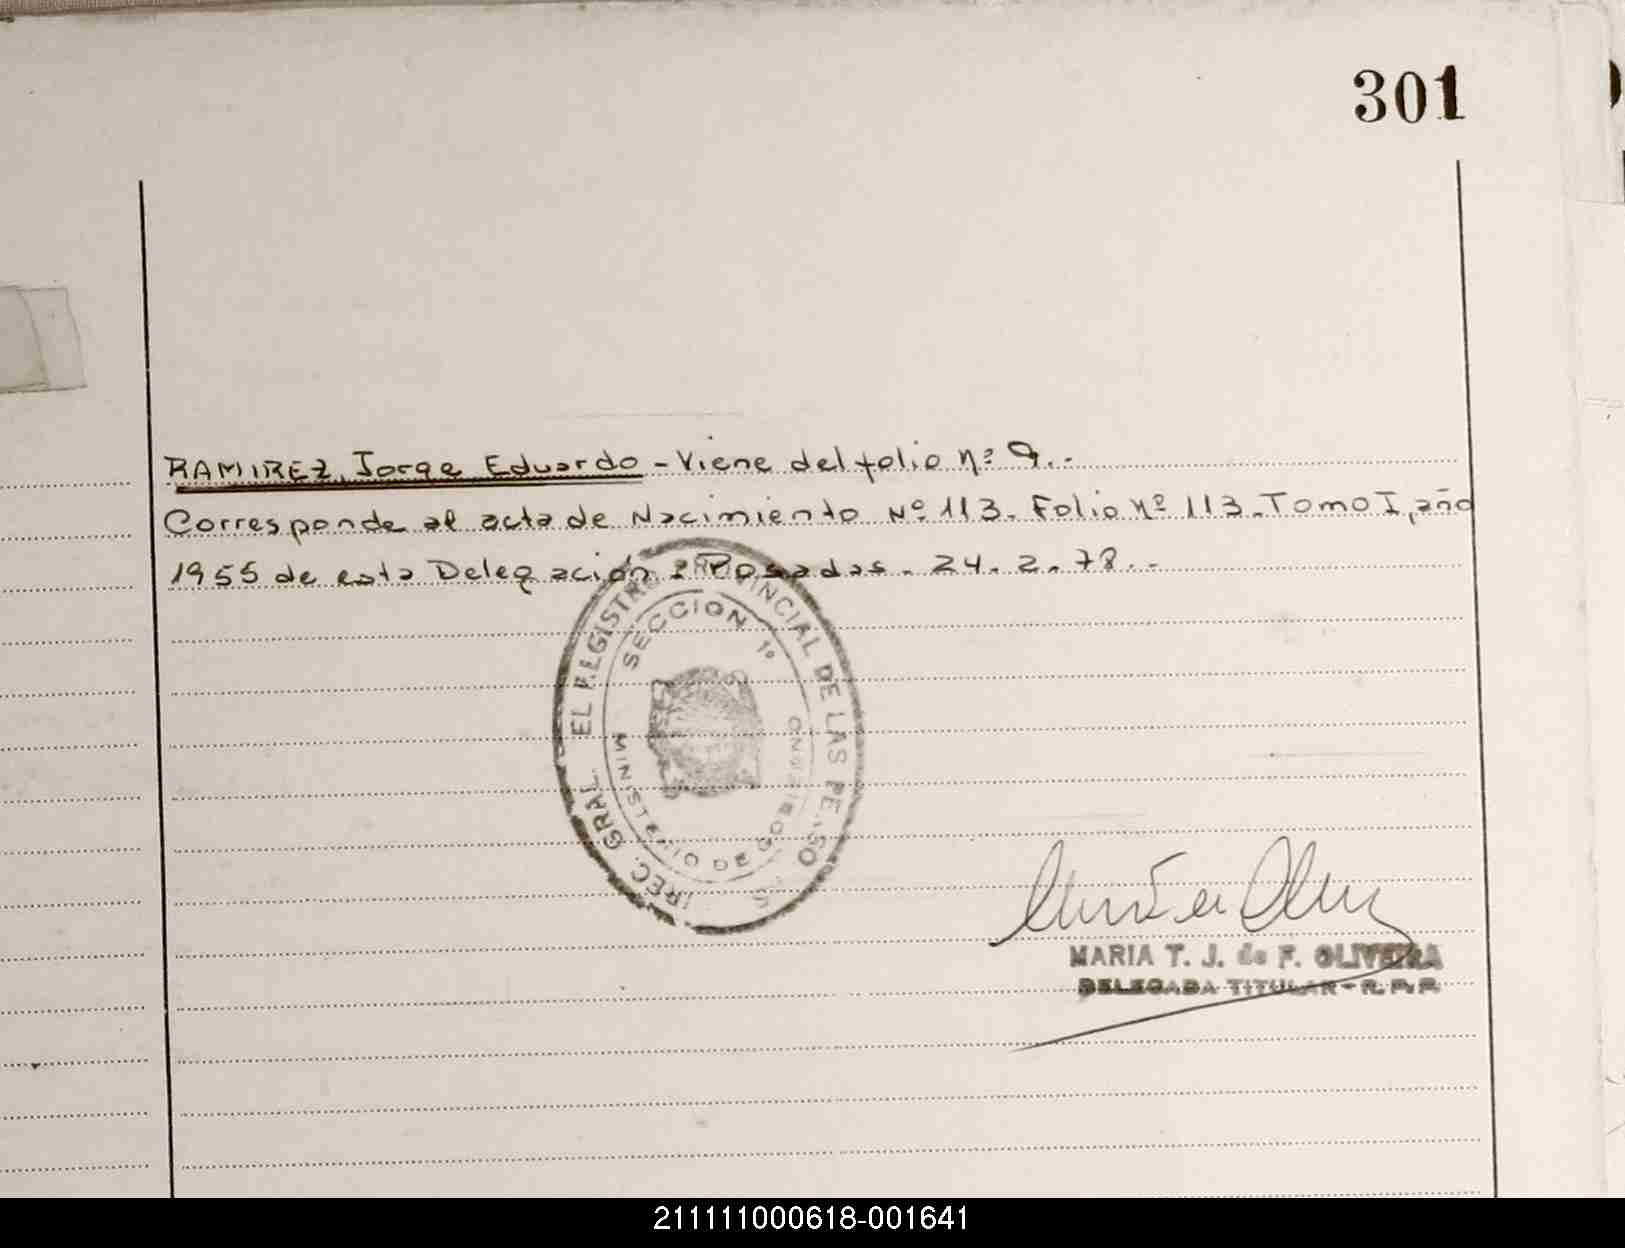 301
RAMIREZ, Jorge Eduardo - Viene del folio nº 9.-
Corresponde al acta de Nacimiento Nº 113. Folio Nº 113. Tomo I, año
1955 de esta Delegación: Posadas. 24.2.78.-
IREC. GRAL. EL REGISTRO PROVINCIAL DE LAS PE
SECCION 1º
MINISTERIO DE GOBIERNO
MARIA T. J. de F. OLIVEIRA
DELEGADA TITULAR - R.P.P.
211111000618-001641